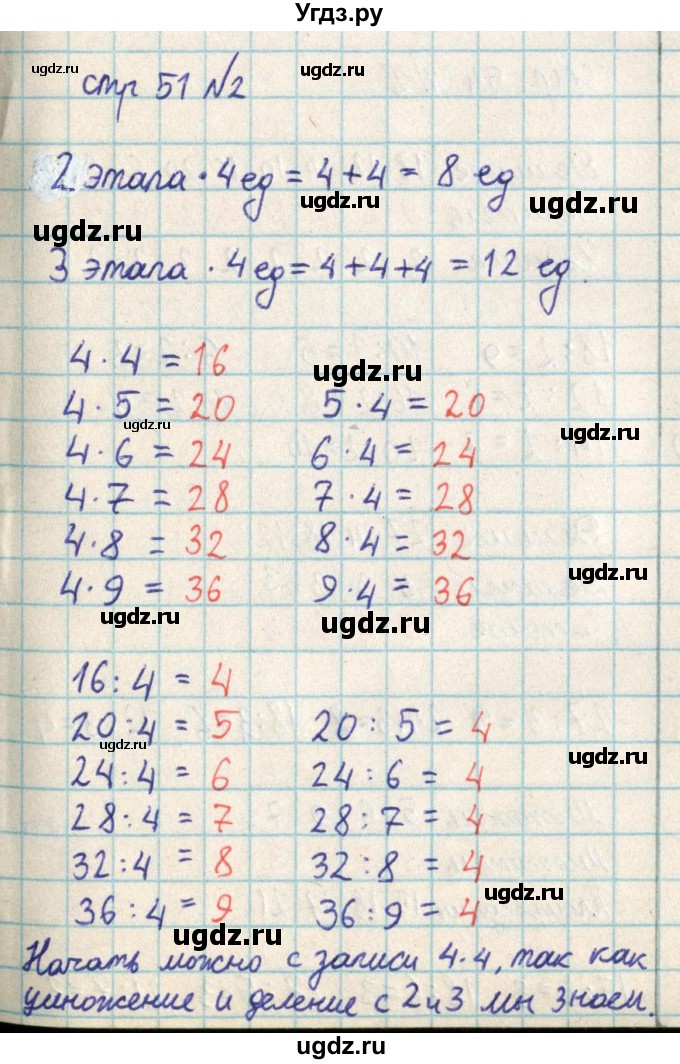 Угдз.ру
ugdz.ru ugdz.ru ugdz.ru
стр 51 №2
2 этапа · 4 ед = 4 + 4 = 8 ед
ugdz.ru ugdz.ru
ugdz.ru
3 этапа · 4 ед = 4 + 4 + 4 = 12 ед.
4 · 4 = 16
ugdz.ru
4 · 5 = 20 5 · 4 = 20
ugdz.ru ugdz.ru
4 · 6 = 24 6 · 4 = 24
4 · 7 = 28 7 · 4 = 28
4 · 8 = 32 8 · 4 = 32
ugdz.ru
4 · 9 = 36 9 · 4 = 36
ugdz.ru ugdz.ru
16 : 4 = 4
20 : 4 = 5 20 : 5 = 4
ugdz.ru ugdz.ru
24 : 4 = 6 24 : 6 = 4
28 : 4 = 7 28 : 7 = 4
32 : 4 = 8 32 : 8 = 4
ugdz.ru
36 : 4 = 9 36 : 9 = 4
ugdz.ru
Начать можно с записи 4·4, так как
умножение и деление с 2 и 3 мы знаем.
ugdz.ru ugdz.ru